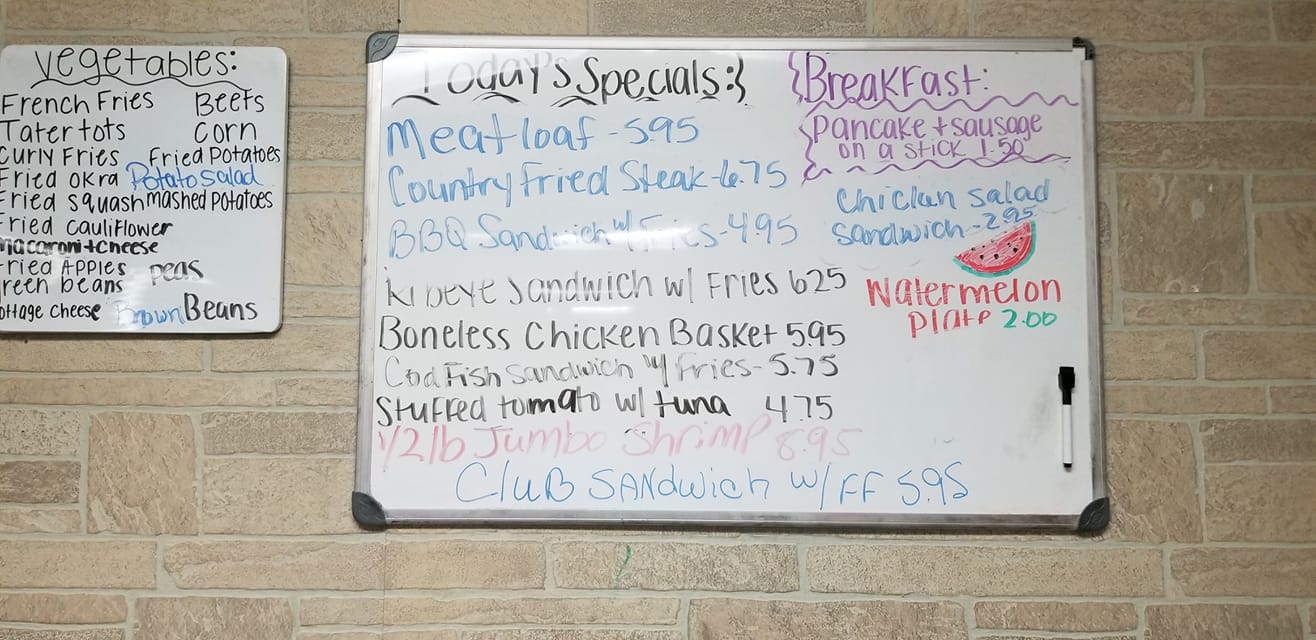 Vegetables:
French Fries Beets
Tater tots Corn
Curly Fries Fried Potatoes
Fried okra Potato Salad
Fried Squash mashed Potatoes
Fried cauliflower
macaroni + cheese
Fried Apples peas
green beans
ottage cheese Brown Beans
Today's Specials:}
Meatloaf - 5.95
Country Fried Steak - 6.75
BBQ Sandwich w/ Fries - 4.95
Ribeye Sandwich w/ Fries 625
Boneless Chicken Basket 5.95
Cod Fish Sandwich w/ Fries - 5.75
Stuffed tomato w/ tuna 4.75
1/2 lb Jumbo Shrimp 8.95
Club Sandwich w/ FF 5.95
{Breakfast:
Pancake + sausage
on a stick 1.50
Chicken salad
sandwich - 2.95
Watermelon
plate 2.00